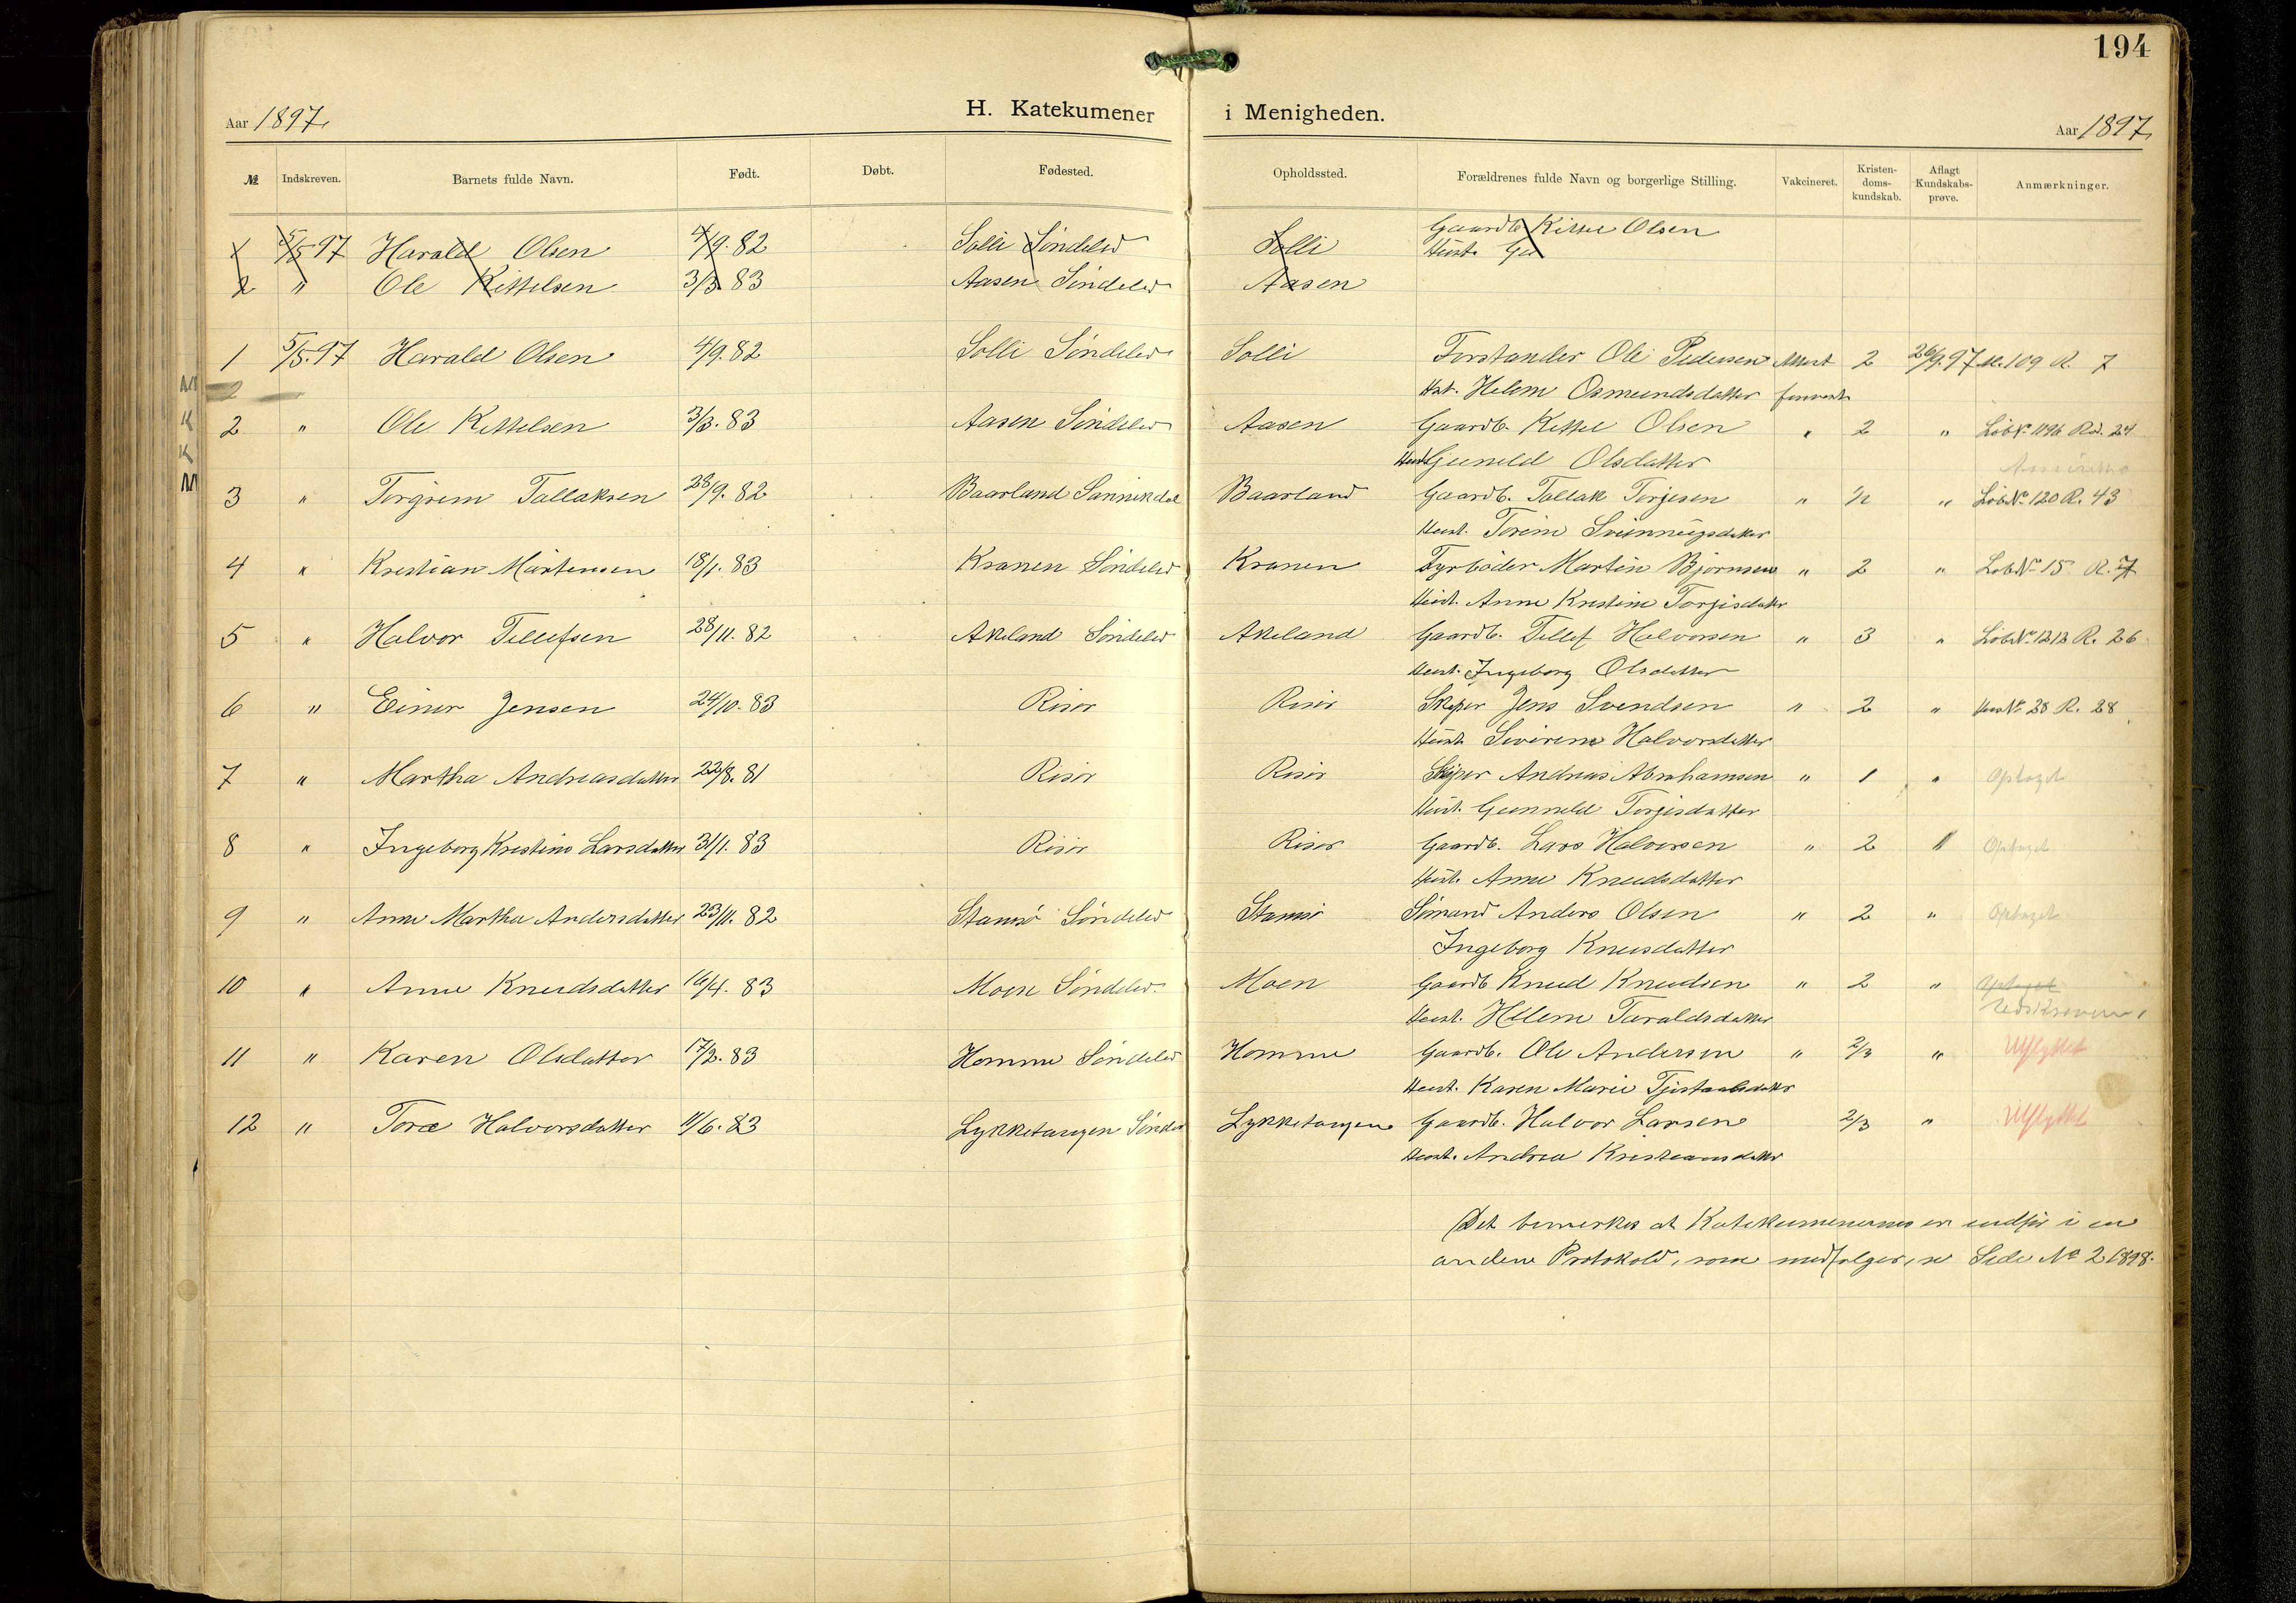 194
H. Katekumener i Menigheden.
Aar 1897. Aar 1897.
№ Indskreven. Barnets fulde Navn. Født. Døbt. Fødested. Opholdssted. Forældrenes fulde Navn og borgerlige Stilling. Vakcineret. Kristendomskundskab. Aflagt Kundskabsprøve. Anmærkninger.
1 5/5 97 Harald Olsen 4/9. 82 Solli Søndeled Solli Gaardb. Kittel Olsen
Hust. Gu
2 " Ole Kittelsen 3/3. 83 Aasen Søndeled Aasen
1 5/5. 97 Harald Olsen 4/9. 82 Solli Søndeled Solli Forstander Ole Pedersen Attest 2 26/9. 97 109 R. 7
2 Hst. Helene Osmundsdatter
2 " Ole Kittelsen 3/3. 83 Aasen Søndeled Aasen Gaardb. Kittel Olsen " 2 " Løb № 1196 Rd. 24
Hust Gunneld Olsdatter
3 " Torgrem Tallaksen 28/9. 82 Baarland Sannikdal Baarland Gaardb. Tallak Terjesen " " Løb № 120 R. 43
Hust. Torine
4 " Kristian Martensen 18/1. 83 Kranen Søndeled Kranen Fyrbøder Martin Bjørnsen " 2 " Løb № 15 R. 7
Hust. Anne Kristine Torjisdatter
5 " Halvor Tellefsen 28/11. 82 Akeland Søndeled Akeland Gaardb. Tellef Halvorsen " 3 " Løb № 1212 R. 26
Hust. Ingeborg Olsdatter
6 " Einer Jensen 24/10. 83 Risør Risør Skiper Jens Svendsen " 2 " № 28 R. 28
Hust. Severine Halvorsdatter
7 " Martha Andreasdatter 22/8. 81 Risør Risør Skiper Andreas Abrahamsen " 1 " Optaget
Hust. Gunneld Torjisdatter
8 " Ingeborg Kristine Larsdatter 31/1. 83 Risør Risør Gaardb. Lars Halvorsen " 2 " Optaget
Hust. Anne Knudsdatter
9 " Anne Martha Andersdatter 23/11. 82 Stamsø Søndeled Stamsø Sømand Anders Olsen " 2 " Optaget
Ingeborg Knusdatter
10 " Anne Knudsdatter 16/4. 83 Moen Søndeled Moen Gaardb Knud Knudsen " 2 " Optaget
Hust. Helene Taraldsdatter Udskreven
11 " Karen Olsdatter 17/3. 83 Homme Søndeled Homme Gaardb. Ole Andersen " 2/3 " Utflyttet
Hust. Karen Marie
12 " Tora Halvorsdatter 11/6. 83 Lykketangen Søndel Lykketangen Gaardb. Halvor Larsen 2/3 " Utflyttet
Hust. Andrea Kristiansdatter
Det bemerkes at Katekumenerne er indført i en
anden Protokold, som medfølger, se Side № 2 1898.